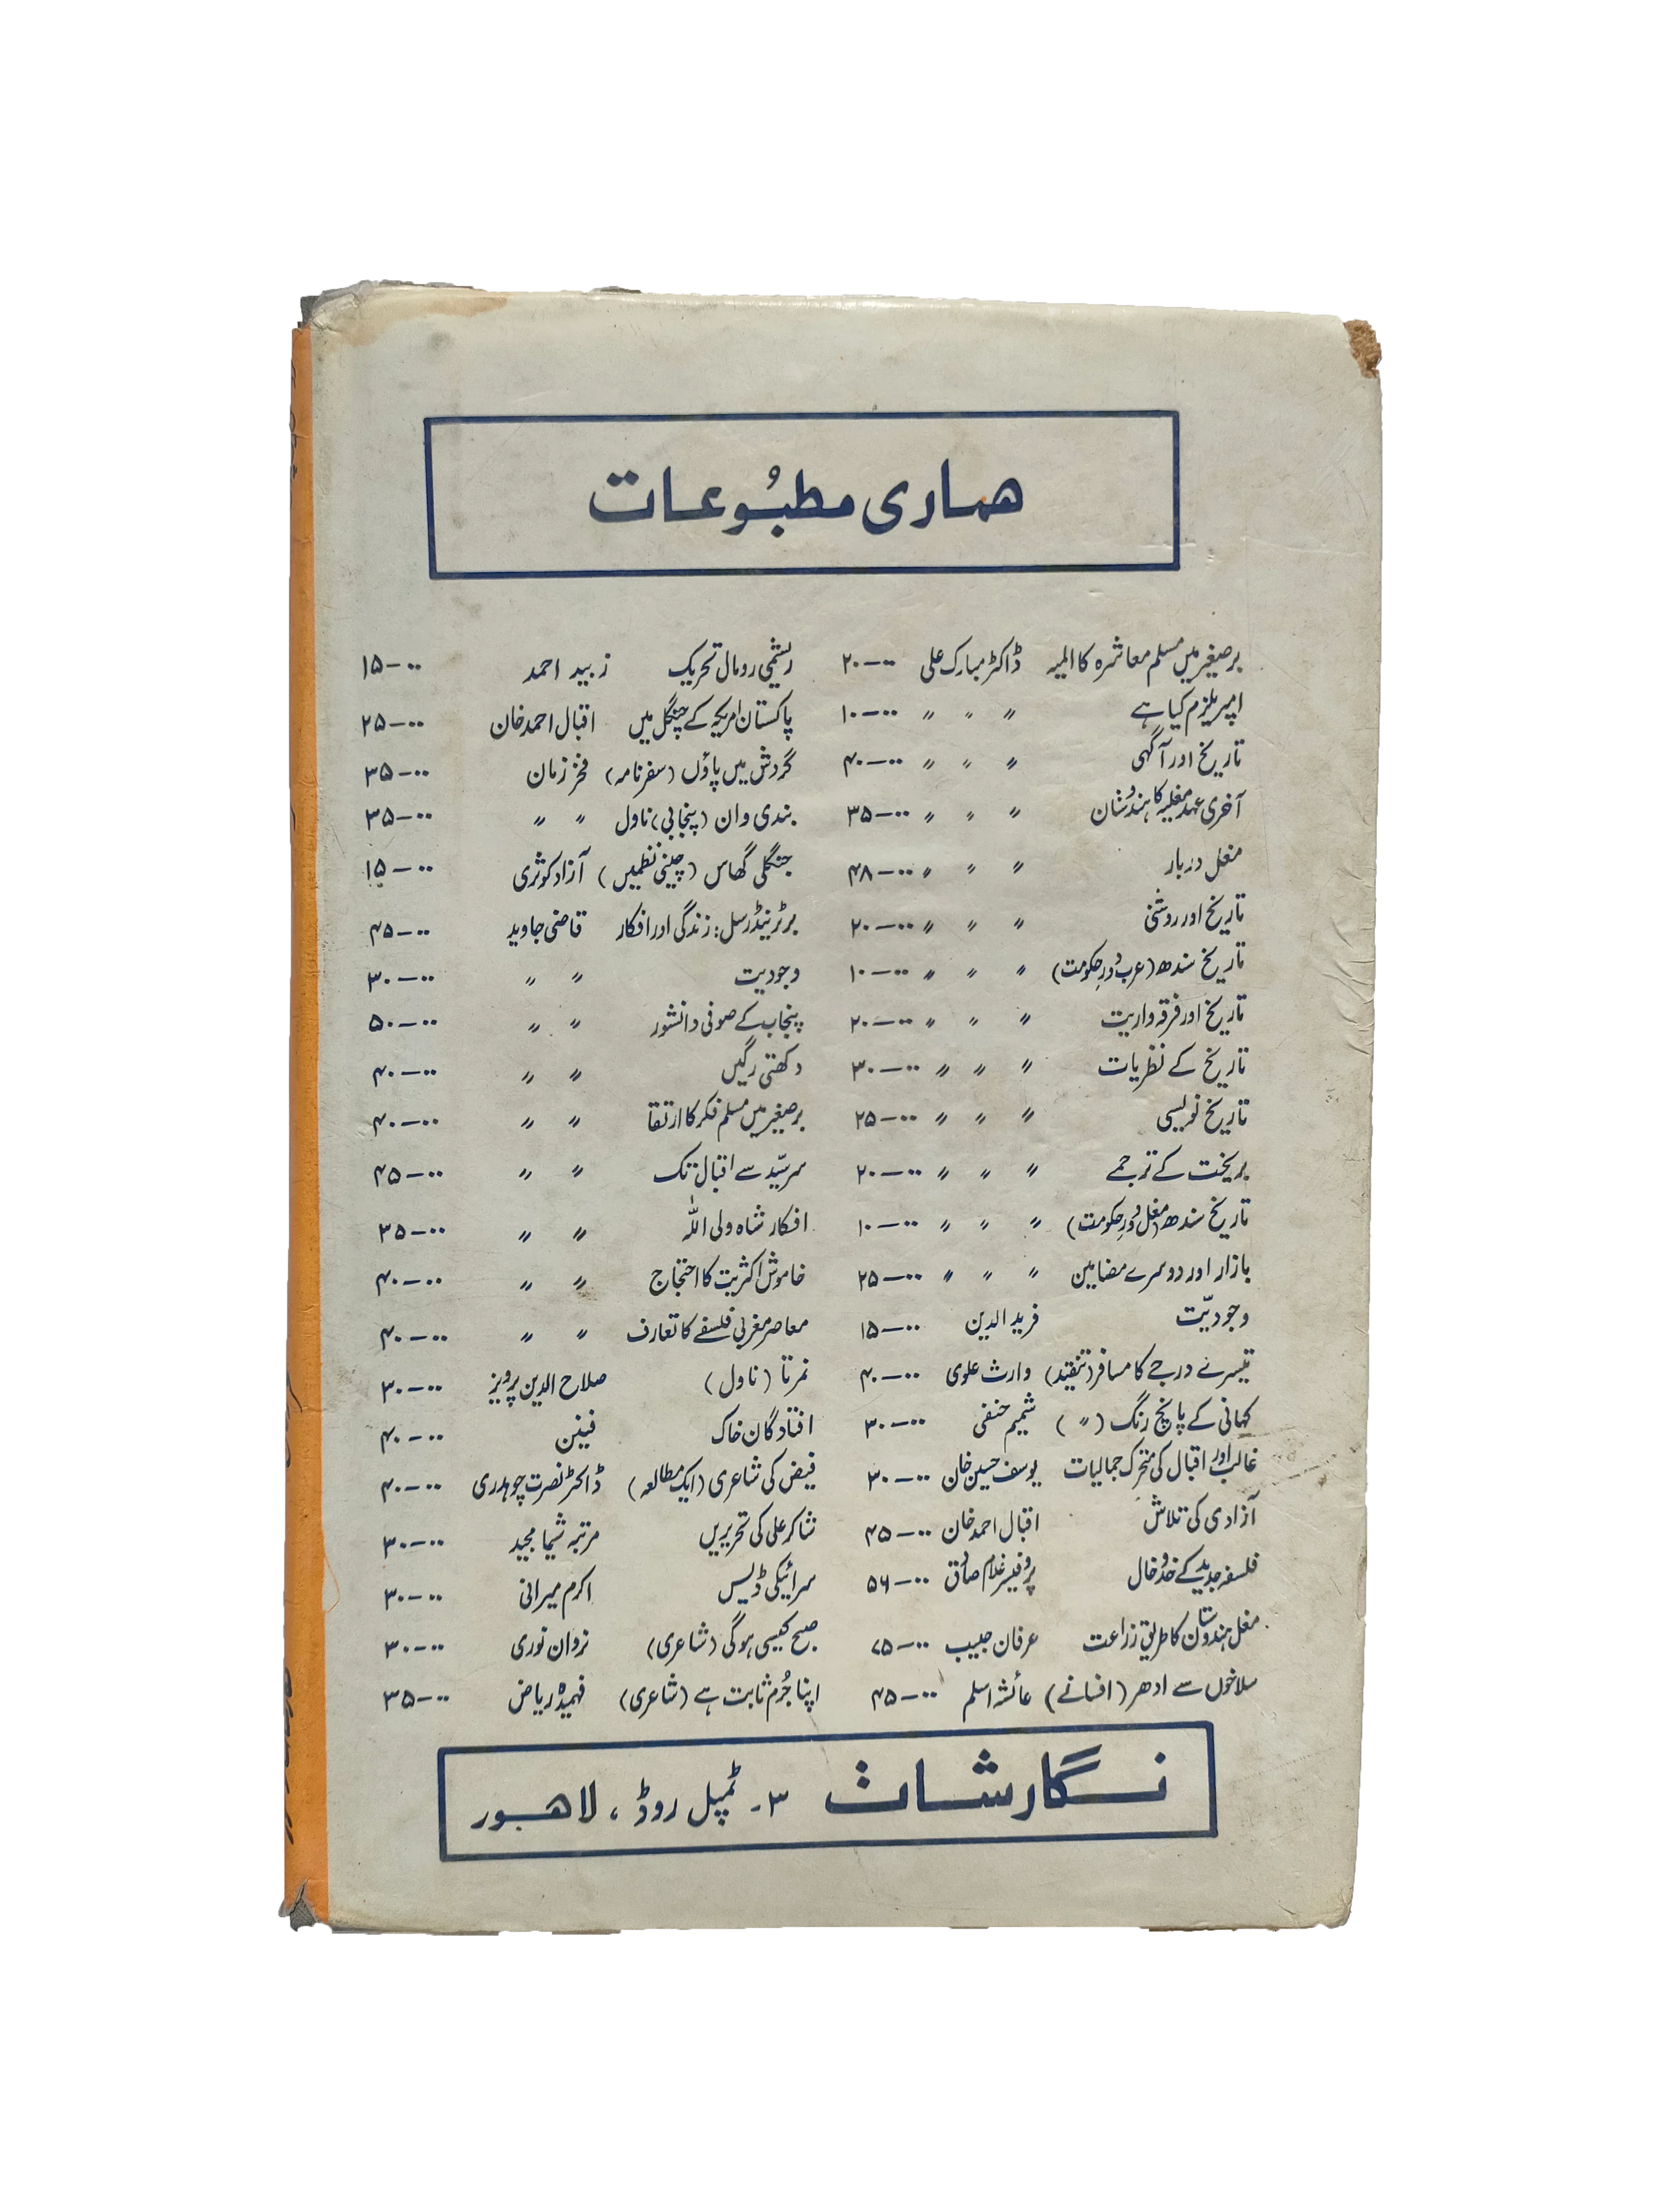 ھماری مطبُوعات
برصغیر میں مسلم معاشرہ کا المیہ ڈاکٹر مبارک علی ۲۰—۰۰
امپریلزم کیا ہے 〃 〃 〃 ۱۰—۰۰
تاریخ اور آگہی 〃 〃 〃 ۴۰—۰۰
آخری عہد مغلیہ کا ہندوستان 〃 〃 〃 ۳۵—۰۰
مغل دربار 〃 〃 〃 ۴۸—۰۰
تاریخ اور روشنی 〃 〃 〃 ۲۰—۰۰
تاریخ سندھ (عرب دورِ حکومت) 〃 〃 〃 ۱۰—۰۰
تاریخ اور فرقہ واریت 〃 〃 〃 ۲۰—۰۰
تاریخ کے نظریات 〃 〃 〃 ۳۰—۰۰
تاریخ نویسی 〃 〃 〃 ۲۵—۰۰
بریخت کے ترجمے 〃 〃 〃 ۲۰—۰۰
تاریخ سندھ (مغل دورِ حکومت) 〃 〃 〃 ۱۰—۰۰
بازار اور دوسرے مضامین 〃 〃 〃 ۲۵—۰۰
وجودیّت فرید الدین ۱۵—۰۰
تیسرے درجے کا مسافر (تنقید) وارث علوی ۴۰—۰۰
کہانی کے پانچ رنگ (〃) شمیم حنفی ۳۰—۰۰
غالب اور اقبال کی متحرک جمالیات یوسف حسین خان ۳۰—۰۰
آزادی کی تلاش اقبال احمد خان ۴۵—۰۰
فلسفہ جدید کے خدوخال پروفیسر غلام صادق ۵۶—۰۰
مغل ہندوستان کا طریق زراعت عرفان حبیب ۷۵—۰۰
سلاخوں سے ادھر (افسانے) عائشہ اسلم ۴۵—۰۰
ریشمی رومال تحریک زبید احمد ۱۵—۰۰
پاکستان امریکہ کے چنگل میں اقبال احمد خان ۲۵—۰۰
گردش میں پاؤں (سفرنامہ) فخر زمان ۳۵—۰۰
بندی وان (پنجابی) ناول 〃 〃 ۳۵—۰۰
جنگلی گھاس (چینی نظمیں) آزاد کوثری ۱۵—۰۰
برٹرینڈرسل: زندگی اور افکار قاضی جاوید ۴۵—۰۰
وجودیت 〃 〃 ۳۰—۰۰
پنجاب کے صوفی دانشور 〃 〃 ۵۰—۰۰
دکھتی رگیں 〃 〃 ۴۰—۰۰
برصغیر میں مسلم فکر کا ارتقا 〃 〃 ۴۰—۰۰
سرسیّد سے اقبال تک 〃 〃 ۴۵—۰۰
افکار شاہ ولی اللہ 〃 〃 ۳۵—۰۰
خاموش اکثریت کا احتجاج 〃 〃 ۴۰—۰۰
معاصر مغربی فلسفے کا تعارف 〃 〃 ۴۰—۰۰
نمرتا (ناول) صلاح الدین پرویز ۳۰—۰۰
افتادگان خاک فینن ۴۰—۰۰
فیض کی شاعری (ایک مطالعہ) ڈاکٹر نصرت چوہدری ۴۰—۰۰
شاکر علی کی تحریریں مرتبہ شیما مجید ۳۰—۰۰
سرائیکی ڈیس اکرم میرانی ۳۰—۰۰
صبح کیسی ہوگی (شاعری) نروان نوری ۳۰—۰۰
اپنا جُرم ثابت ہے (شاعری) فہمیدہ ریاض ۳۵—۰۰
نگارشات ۳۔ ٹمپل روڈ، لاھور